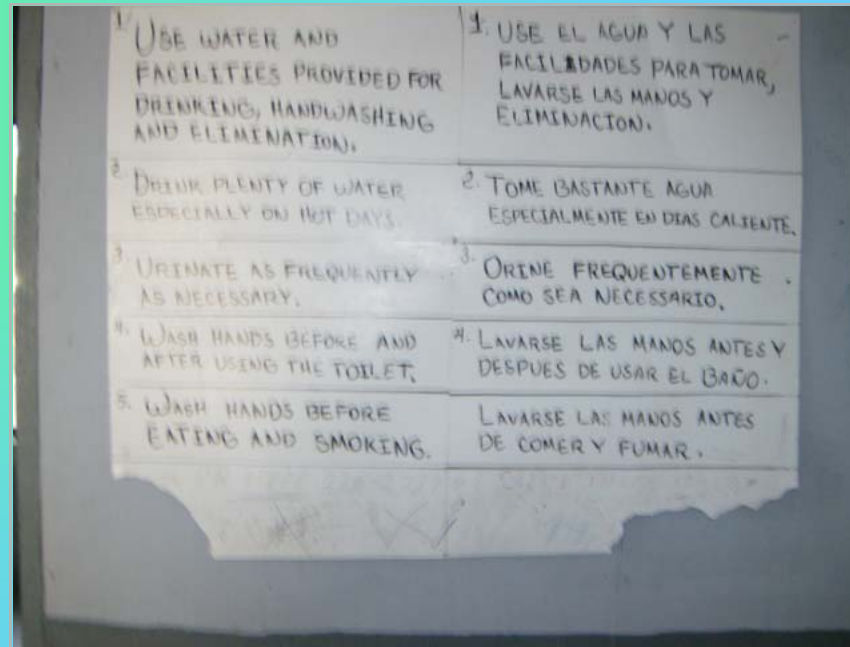 1. USE WATER AND
FACILITIES PROVIDED FOR
DRINKING, HANDWASHING
AND ELIMINATION.
2. DRINK PLENTY OF WATER
ESPECIALLY ON HOT DAYS.
3. URINATE AS FREQUENTLY
AS NECESSARY.
4. WASH HANDS BEFORE AND
AFTER USING THE TOILET.
5. WASH HANDS BEFORE
EATING AND SMOKING.
1. USE EL AGUA Y LAS
FACILIDADES PARA TOMAR,
LAVARSE LAS MANOS Y
ELIMINACION.
2. TOME BASTANTE AGUA
ESPECIALMENTE EN DIAS CALIENTE.
3. ORINE FREQUENTEMENTE
COMO SEA NECESSARIO.
4. LAVARSE LAS MANOS ANTES Y
DESPUES DE USAR EL BAÑO.
LAVARSE LAS MANOS ANTES
DE COMER Y FUMAR.